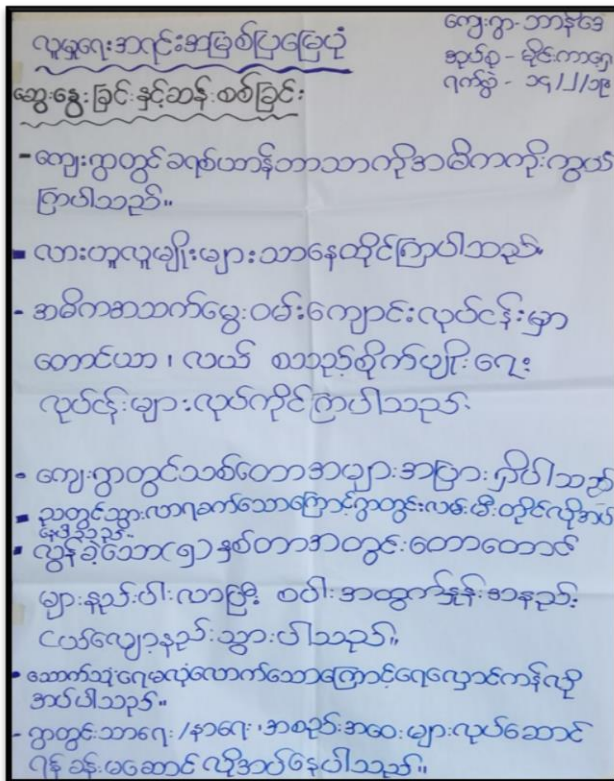 လူမှုရေးအရင်းအမြစ်ပြမြေပုံ
ကျေးရွာ-ဘာန်ဒေ
အုပ်စု - မိုင်းကာရှေ
ရက်စွဲ - ၁၄/၂/၁၉
ဆွေးနွေးခြင်းနှင့်ဆန်းစစ်ခြင်း
- ကျေးရွာတွင်ခရစ်ယာန်ဘာသာကိုအဓိကကိုးကွယ်
ကြပါသည်။
- လားဟူလူမျိုးများသာနေထိုင်ကြပါသည်။
- အဓိကအသက်မွေးဝမ်းကျောင်းလုပ်ငန်းမှာ
တောင်ယာ၊ လယ် စသည့်စိုက်ပျိုးရေး
လုပ်ငန်းများလုပ်ကိုင်ကြပါသည်။
• ကျေးရွာတွင်သစ်တောအများအပြားရှိပါသည်
- ညတွင်သွားလာရခက်သောကြောင့်ရွာတွင်းလမ်းမီးတိုင်လိုအပ်
နေပါသည်။
• လွန်ခဲ့သော(၅)နှစ်တာအတွင်းတောတောင်
များနည်းပါးလာပြီး စပါးအထွက်နှုန်းအနည်း
ငယ်လျော့နည်းသွားပါသည်။
• သောက်သုံးရေမလုံလောက်သောကြောင့်ရေလှောင်ကန်လို
အပ်ပါသည်။
- ရွာတွင်းသာရေး/နာရေး၊အစည်းအဝေးများလုပ်ဆောင်
ရန်ခန်းမဆောင်လိုအပ်နေပါသည်။